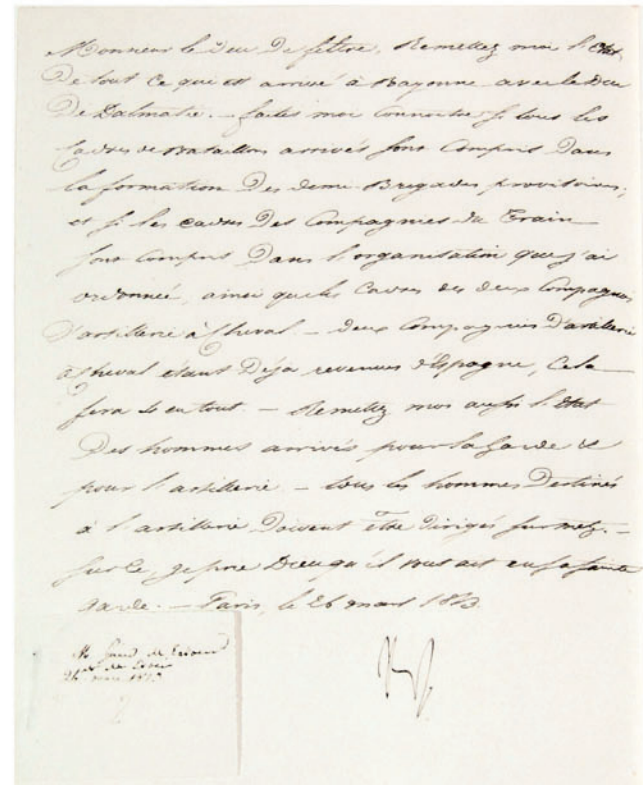 Monsieur le Duc De feltre, Remettez moi l'état
De tout ce qui est arrivé à Bayonne avec le Duc
De Dalmatie. - faites moi connoitre si tous les
Cadres de Bataillons arrivés sont Compris Dans
la formation Des demi-Brigades provisoires,
et si les cadres Des Compagnies du Train
sont Compris Dans l'organisation que j'ai
ordonnée, ainsi que les Cadres des deux Compagnies
D'artillerie à Cheval - deux Compagnies D'artillerie
à Cheval étant Déja revenues d'Espagne, Cela
fera en tout. - Remettez moi aussi l'état
Des hommes arrivés pour la Garde et
pour l'artillerie - tous les hommes Destinés
à l'artillerie Doivent être Dirigés sur metz. -
sur ce, je prie Dieu qu'il vous ait en sa sainte
Garde. - Paris, le 26 mars 1813.
Np